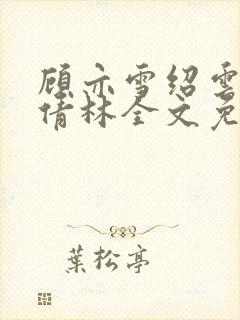 顾亦雪绍雲
倩林全文免
葉松亭